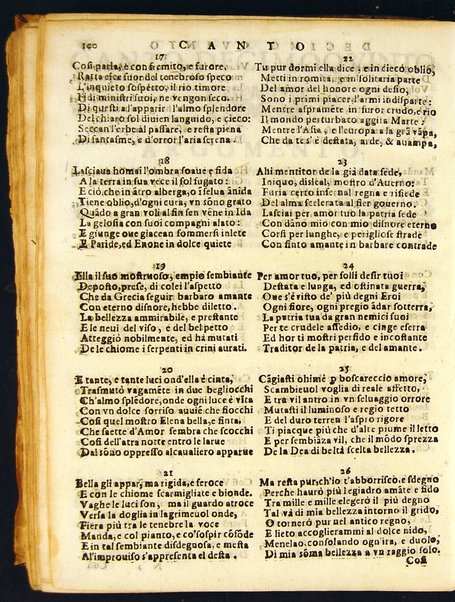 100 CANTO
17
Così parla, e con fremito, e furore,
Ratta esce fuor del tenebroso speco
L'inquieto sospetto, il rio timore
H di ministri suoi, ne vengon seco.
Di questa al'apparir l'almo splendore
Del chiaro sol divien languido, e cieco:
Seccan l'erbe al passare, e resta piena
Di fantasme, e d'orror l'aria serena.
18
Lasciava homai l'ombra soave e fida
A la terra in sua vece il sol fugato:
E ciò, che in atro alberga, o'l sena ànida
Tiene oblio, d'ogni cura, vn sóno grato
Quãdo a gran voli al fin sen véne in Ida
La gelosia con suoi compagni alato:
E giunge oue giacean sommersi in lete
E Paride, ed Enone in dolce quiete
19
Ella il suo mostruoso, empio sembiante
Deposto, prese, di colei l'aspetto
Che da Grecia seguir barbaro amante
Con eterno disnore, hebbe diletto.
La bellezza ammirabile, e prestante
E le neui del viso, e del bel petto
Atteggiò nobilmente, ed ha mutati
De le chiome i serpenti in crini aurati.
20
E tante, e tante luci ond'ella è ciata,
Trasmutò vagamẽte in due begliocchi
Ch'almo splẽdore, onde ogni luce è vita
Con vn dolce sorriso auuiẽ che fiocchi
Così quel mostro Elena bella, e finta.
Che saette d'Amor sembra che scocchi
Così dell'atra notte entro le larue
Dal sóno oppresso al cavaliero apparue
21
Bella gli appar, ma rigida, e feroce
E con le chiome scarmigliate e bionde.
Vaghe le luci son, ma il guardo atroce
Versa la doglia in lagrime, ol'onde,
Fiera più tra le tenebre la voce
Manda, e col pianto, e co'sospir cõfõde
E in tal sembiante disdegnosa, e mesta
Al'improuiso s'appresenta el desta.
DECIMOQVINTO
22
Tu pur dormi ella dice, e in cieco oblio,
Metti in romita, e in solitaria parte
Del amor del honore ogni desio,
Sono i primi piacer, l'armi indisparte:
Mentre aspramẽte in furor crudo, e rio
Il mondo perturbato aggita Marte:
Mentre l'Asia, e l'europa a la grã vãpa,
Che da tes'è destata, arde, & auampa,
23
Ahi mentitor de la già data sede,
Iniquo, disleal, mostro d'Auerno:
Furia certo infernal regna e risiede
Del alma scelerata al fier gouerno.
Lasciai per amor tuo la patria sede
Con dãno mio con mio disnore eterno
Così per lunghe, e perigliose strade
Con finto amante in barbare contrade
24
Per amor tuo, per folli desir tuoi
Destata e lunga, ed ostinata guerra,
Oue s'è visto de' più degni Eroi
Ogni fiore, ogni pregio ãdar sotterra,
La patria tua da gran nemici suoi
Per te crudele assedio, e cinge e serra
Ed hor ti mostri perfido e incostante
Traditor de la patria, e del amante.
25
Cãgiasti ohimè p boscareccio amore,
Scambieuol voglia di reale affetto,
E tra vil antro in vn seluaggio orrore
Mutasti il luminoso e regio tetto
E del duro terren l'aspro rigore
Ti piacque più che d'alte piume il letto
E per sembiãza vil, che il mõdo sprezza
De la Dea di beltà scelta bellezza.
26
Ma resta pur, ch'io t'abborrisco, e sdegno
Perche hauró più legiadro amãte e fido
Tra mille e mille elegerò il più degno
Tal và di mia bellezza intorno il grido,
O tornerò pur nel antico regno,
E lieto accoglierammi al dolce nido,
Menelao consolando ogn'ira, e duolo,
Di mia sóma bellezza a vn raggio solo.
Così